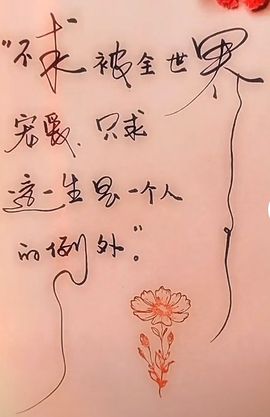 “不求被全世界
宠爱、只求
这一生是一个人
的例外”。